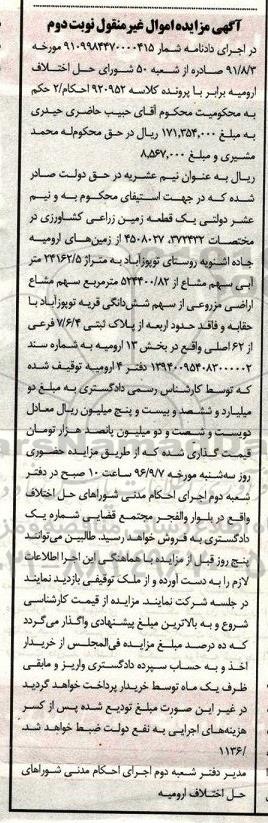 آگهی مزایده اموال غیرمنقول نوبت دوم
در اجرای دادنامه شمار ۹۱۰۹۹۸۴۴۷۰۰۰۰۴۱۵ مورخه
۹۱/۸/۳ صادره از شعبه ۵۰ شورای حل اختلاف
ارومیه برابر با پرونده کلاسه ۹۲۰۹۵۲ احکام/۲ حکم
به محکومیت محکوم آقای حبیب حاضری حیدری
به مبلغ ۱۷۱,۳۵۴,۰۰۰ ریال در حق محکوم‌له محمد
مشیری و مبلغ ۸,۵۶۷,۰۰۰
ریال به عنوان نیم عشریه در حق دولت صادر
شده که در جهت استیفای محکوم به و نیم
عشر دولتی یک قطعه زمین زراعی کشاورزی در
مختصات ۳۷۲۴۳۲، ۴۵۰۸۰۲۷ از زمین‌های ارومیه
جاده اشنویه روستای توپوزآباد به متراژ ۲۴۱۶۲/۵ متر
آبی سهم مشاع از ۵۲۴۴۰۰/۸۲ مترمربع سهم مشاع
اراضی مزروعی از سهم شش‌دانگی قریه توپوزآباد با
حقابه و فاقد حدود اربعه از پلاک ثبتی ۷/۶/۴ فرعی
از ۶۲ اصلی واقع در بخش ۱۳ ارومیه به شماره سند
۱۳۹۴۰۰۹۵۴۰۸۳۰۰۰۰۰۲ دفتر ۴ ارومیه توقیف شده
که توسط کارشناس رسمی دادگستری به مبلغ دو
میلیارد و ششصد و بیست و پنج میلیون ریال معادل
دویست و شصت و دو میلیون پانصد هزار تومان
قیمت گذاری شده که از طریق مزایده حضوری
روز سه‌شنبه مورخه ۹۶/۹/۷ ساعت ۱۰ صبح در دفتر
شعبه دوم اجرای احکام مدنی شوراهای حل اختلاف
واقع در بلوار والفجر مجتمع قضایی شماره یک
دادگستری به فروش خواهد رسید. طالبین می‌توانند
پنج روز قبل از مزایده با هماهنگی این اجرا اطلاعات
لازم را به دست آورده و از ملک توقیفی بازدید نمایند
در جلسه شرکت نمایند. مزایده از قیمت کارشناسی
شروع و به بالاترین مبلغ پیشنهادی واگذار می‌گردد
که ده درصد مبلغ مزایده فی‌المجلس از خریدار
اخذ و به حساب سپرده دادگستری واریز و مابقی
ظرف یک ماه توسط خریدار پرداخت خواهد گردید
در غیر این صورت مبلغ تودیع شده پس از کسر
هزینه‌های اجرایی به نفع دولت ضبط خواهد شد.
/۱۱۳۶
مدیر دفتر شعبه دوم اجرای احکام مدنی شوراهای
حل اختلاف ارومیه